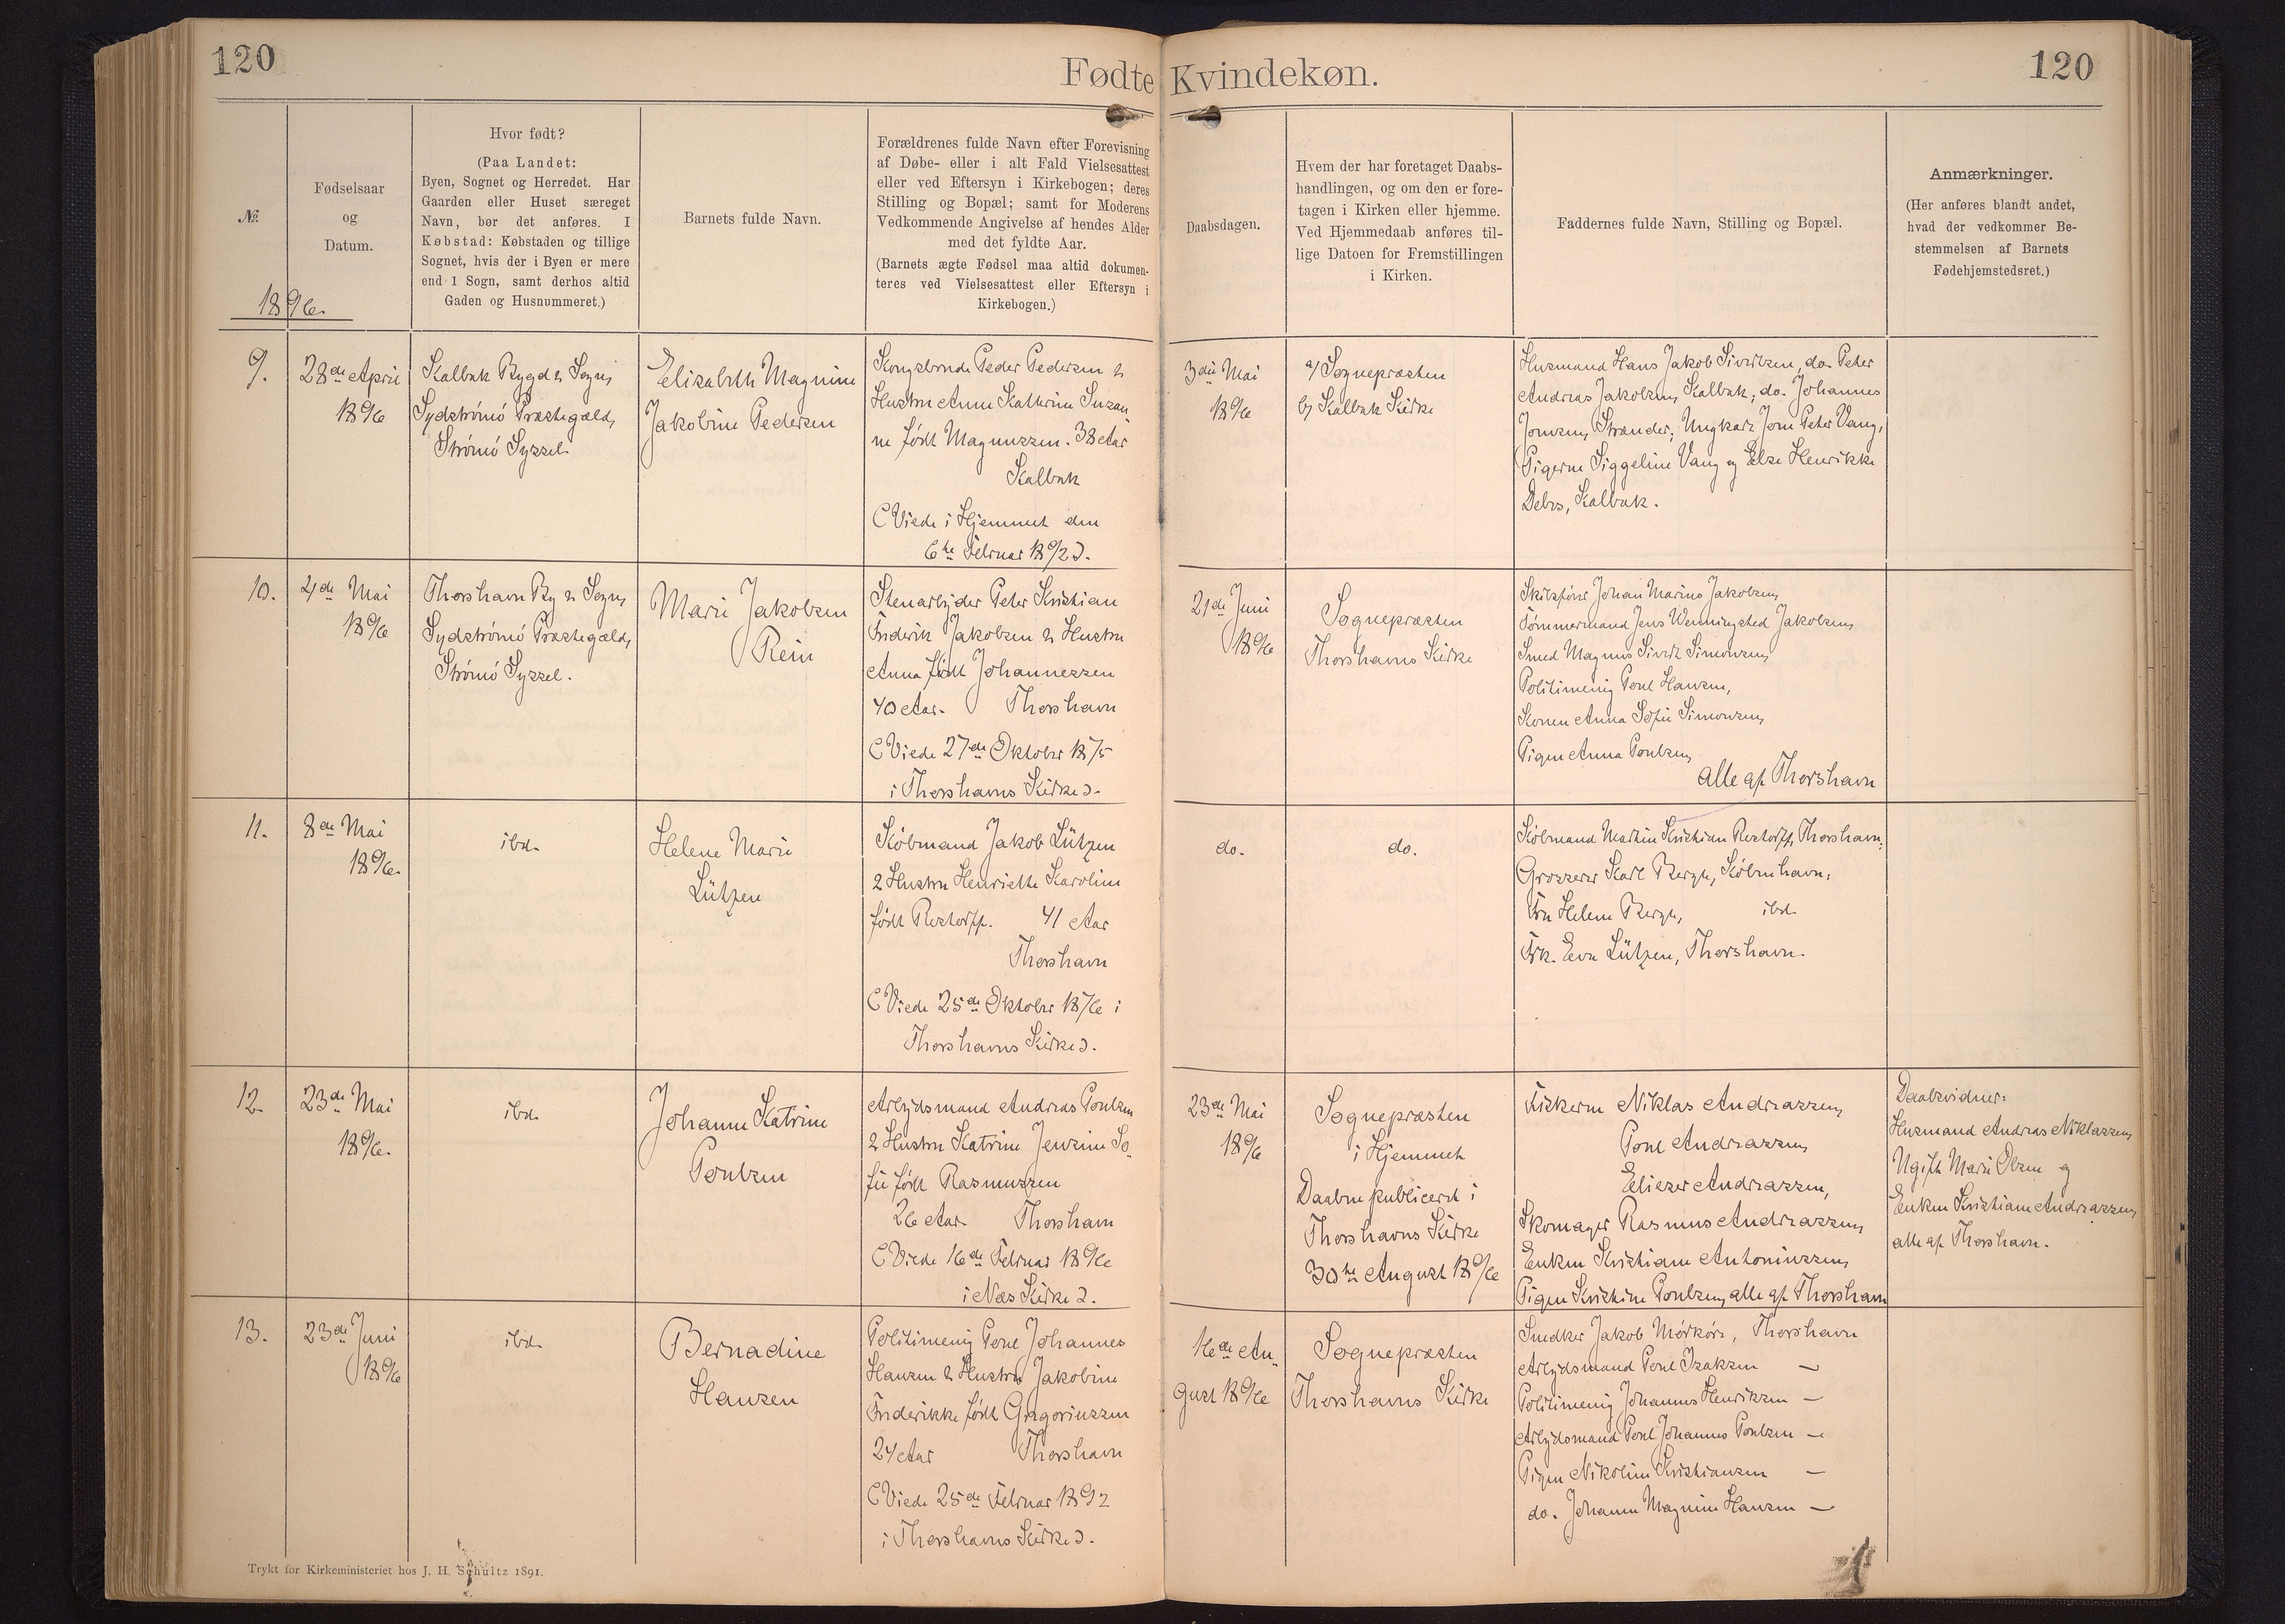 120
Fødte Kvindekøn.
120
№
1896.
Fødselsaar
og
Datum.
Hvor født?
(Paa Landet:
Byen, Sognet og Herredet. Har
Gaarden eller Huset særeget
Navn, bør det anføres. I
Købstad: Købstaden og tillige
Sognet, hvis der i Byen er mere
end 1 Sogn, samt derhos altid
Gaden og Husnummeret.)
Barnets fulde Navn.
Forældrenes fulde Navn efter Forevisning
af Døbe- eller i alt Fald Vielsesattest
eller ved Eftersyn i Kirkebogen; deres
Stilling og Bopæl; samt for Moderens
Vedkommende Angivelse af hendes Alder
med det fyldte Aar.
(Barnets ægte Fødsel maa altid dokumen-
teres ved Vielsesattest eller Eftersyn i
Kirkebogen.)
Daabsdagen.
Hvem der har foretaget Daabs-
handlingen, og om den er fore-
tagen i Kirken eller hjemme.
Ved Hjemmedaab anføres til-
lige Datoen for Fremstillingen
i Kirken.
Faddernes fulde Navn, Stilling og Bopæl.
Anmærkninger.
(Her anføres blandt andet,
hvad der vedkommer Be-
stemmelsen af Barnets
Fødehjemstedsret.)
9.
28de April
1896
Kalbak Bygd & Sogn,
Sydströmö Præstegæld,
Strömö Syssel.
Elisabeth Magnine
Jakobine Pedersen
Kongsbonde Peder Pedersen &
Hustru Anne Kathrine Suzan
ne född Magnussen. 38 Aar
Kalbak
(Viede i Hjemmet den
6te Februar 1892).
3die Mai
1896
a/ Sognepræsten
b/ Kalbak Kirke
Husmand Hans Jakob Sivertsen, do. Peter
Andreas Jakobsen, Kalbak; do. Johannes
Joensen, Strænder; Ungkarl Joen Peter Vang,
Pigerne Siggeline Vang og Else Henrikke
Debes, Kalbak.
10.
4de Mai
1896
Thorshavn By & Sogn,
Sydströmö Præstegæld,
Strömö Syssel.
Marie Jakobsen
Rein
Stenarbejder Peter Kristian
Frederik Jakobsen & Hustru
Anna född Johannessen
40 Aar. Thorshavn
(Viede 27de Oktober 1875
i Thorshavns Kirke).
21de Juni
1896
Sognepræsten
Thorshavns Kirke
Skibsförer Johan Marius Jakobsen,
Tömmermand Jens Wenningsted Jakobsen,
Smed Magnus Sivert Simonsen,
Politimenig Poul Hansen,
Konen Anna Sofie Simonsen,
Pigen Anna Poulsen,
alle af Thorshavn
11.
8de Mai
1896.
ibd.
Helene Marie
Lützen
Köbmand Jakob Lützen
& Hustru Henriette Karoline
född Restorff. 41 Aar
Thorshavn
(Viede 25de Oktober 1876 i
Thorshavns Kirke).
do.
do.
Köbmand Martin Kristian Restorff, Thorshavn;
Grosserer Karl Bergh, Köbenhavn;
Fru Helene Bergh, ibd.
Frk. Eva Lützen, Thorshavn.
12.
23de Mai
1896.
ibd.
Johanne Katrine
Poulsen
Arbejdsmand Andreas Poulsen
& Hustru Katrine Jensine So-
fie född Rasmussen
26 Aar. Thorshavn
(Viede 16de Februar 1896
i Næs Kirke).
23de Mai
1896
Sognepræsten
i Hjemmet
Daaben publiceret i
Thorshavns Kirke
30te August 1896
Fiskerne Niklas Andreassen,
Poul Andreassen,
Eliezer Andreassen,
Skomager Rasmus Andreassen,
Enken Kristiane Antoniussen,
Pigen Kristine Poulsen, alle af Thorshavn
Daabsvidner:
Husmand Andreas Niklassen,
Ugift Marie Olsen og
Enken Kristiane Andreassen,
alle af Thorshavn.
13.
23de Juni
1896
ibd.
Bernadine
Hansen
Politimenig Poul Johannes
Hansen & Hustru Jakobine
Frederikke född Gregoriussen
24 Aar Thorshavn
(Viede 25de Februar 1892
i Thorshavns Kirke).
16de Au-
gust 1896
Sognepræsten
Thorshavns Kirke
Snedker Jakob Mörköre, Thorshavn
Arbejdsmand Poul Isaksen —
Politimenig Johannes Henriksen —
Arbejdsmand Poul Johannes Poulsen —
Pigen Nikoline Kristiansen —
do. Johanne Magnine Hansen —
Trykt for Kirkeministeriet hos J. H. Schultz 1891.